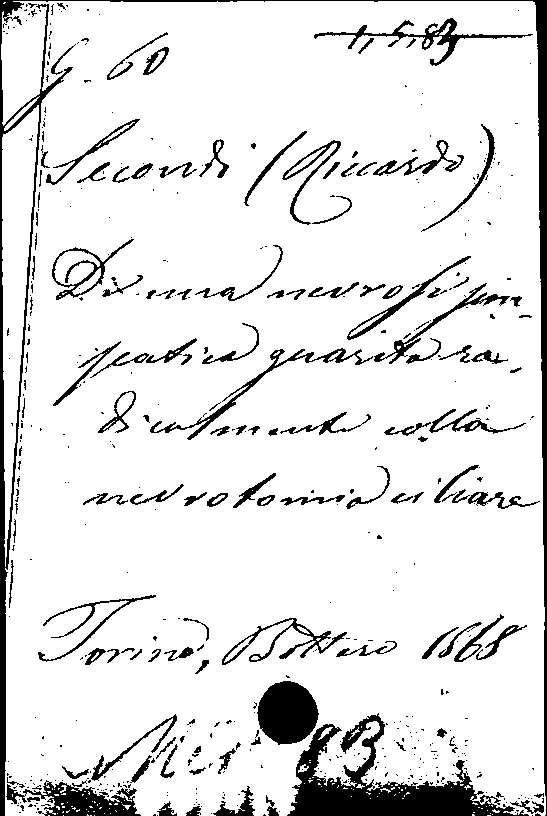 G. 60
1,5,83
Secondi (Riccardo)
Di una nevrosi sim-
patica guarita ra-
dicalmente colla
nevrotomia ciliare
Torino, Bottero 1868
83